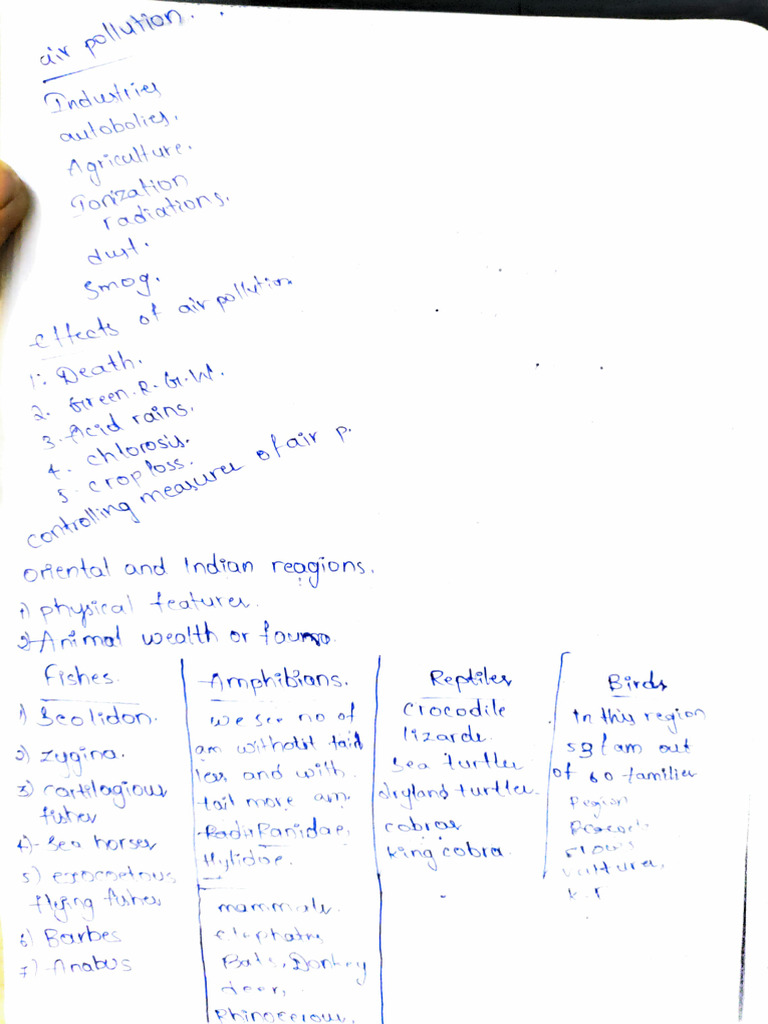 air pollution.
Industries
autobolies.
Agriculture.
Ionization
radiations.
dust.
smog.
effects of air pollution
1. Death.
2. Green. R. G. W.
3. Acid rains.
4. chlorosis.
5. crop loss.
controlling measures of air p.
oriental and Indian reagions.
1) physical features.
2) Animal wealth or fauna
Fishes.
1) Scolidon.
2) zygina.
3) cartilagious
fishes
4) Sea horses
5) exocoetous
flying fishes
6) Barbes
7) Anabus
Amphibians.
we see no of
am without tail
less and with
tail more am.
Panidae,
Hylidae.
mammals.
Elephats
Bats, Donkey
deer,
Phinocerous.
Reptiles
crocodile
lizards.
Sea turtles
dryland turtles.
cobras
king cobra.
Birds
In this region
53 fam out
of 60 families
Pegion
crows
vultures,
k.f